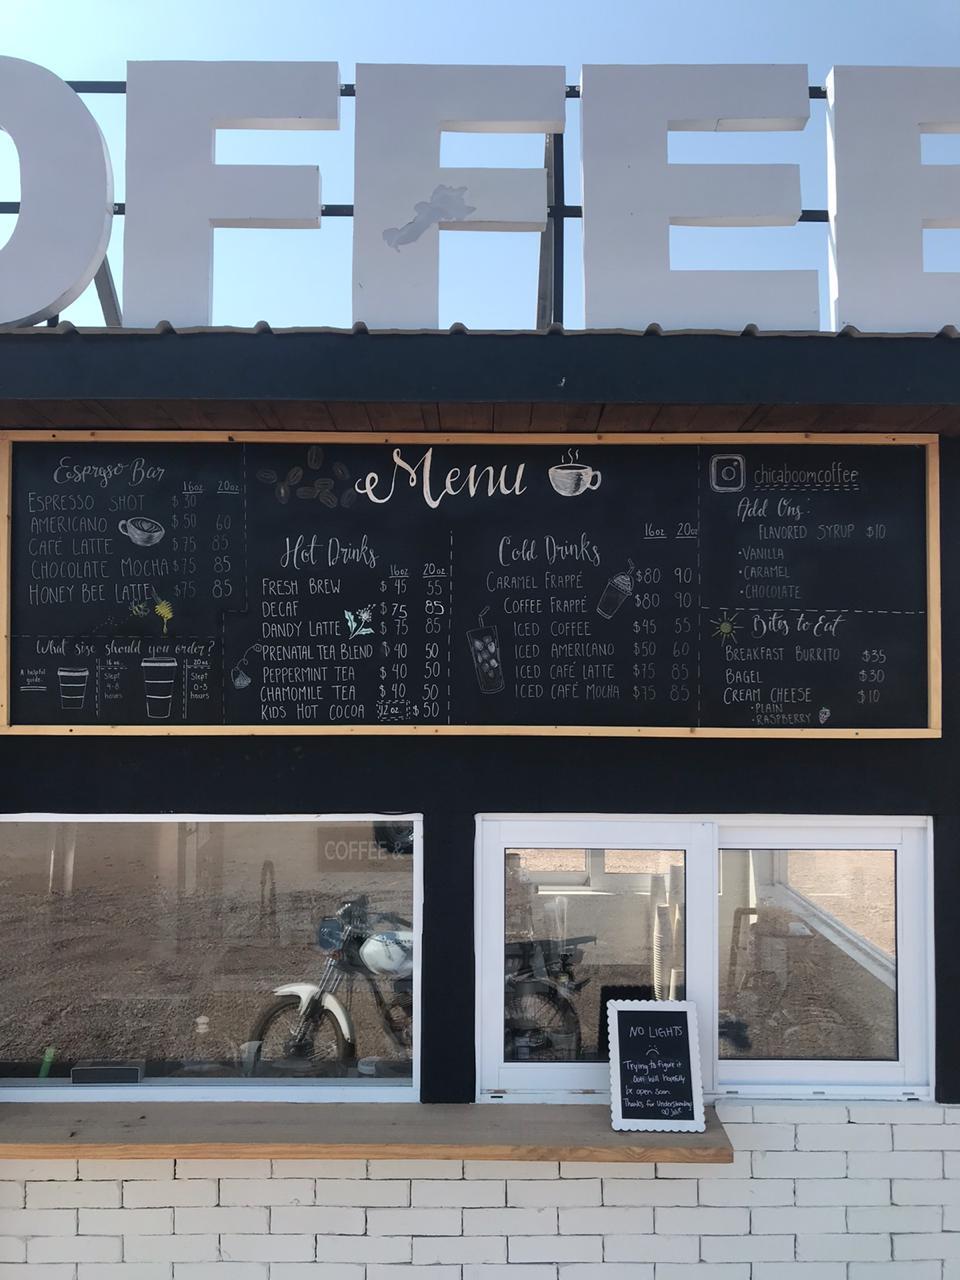 OFFEE
Menu
Espresso Bar
16oz 20oz
ESPRESSO SHOT $30
AMERICANO $50 60
CAFÉ LATTE $75 85
CHOCOLATE MOCHA $75 85
HONEY BEE LATTE $75 85
What size should you order?
A helpful guide:
16 oz. Slept 4-8 hours
20 oz. Slept 0-3 hours
Hot Drinks
16oz 20oz
FRESH BREW $45 55
DECAF $75 85
DANDY LATTE $75 85
PRENATAL TEA BLEND $40 50
PEPPERMINT TEA $40 50
CHAMOMILE TEA $40 50
KIDS HOT COCOA 12 oz. $50
Cold Drinks
16oz 20oz
CARAMEL FRAPPÉ $80 90
COFFEE FRAPPÉ $80 90
ICED COFFEE $45 55
ICED AMERICANO $50 60
ICED CAFÉ LATTE $75 85
ICED CAFÉ MOCHA $75 85
chicaboomcoffee
Add Ons:
FLAVORED SYRUP $10
•VANILLA
•CARAMEL
•CHOCOLATE
Bites to Eat
BREAKFAST BURRITO $35
BAGEL $30
CREAM CHEESE $10
•PLAIN
•RASPBERRY
COFFEE &
NO LIGHTS
:(
Trying to figure it
out! Will hopefully
be open soon.
Thanks for Understanding